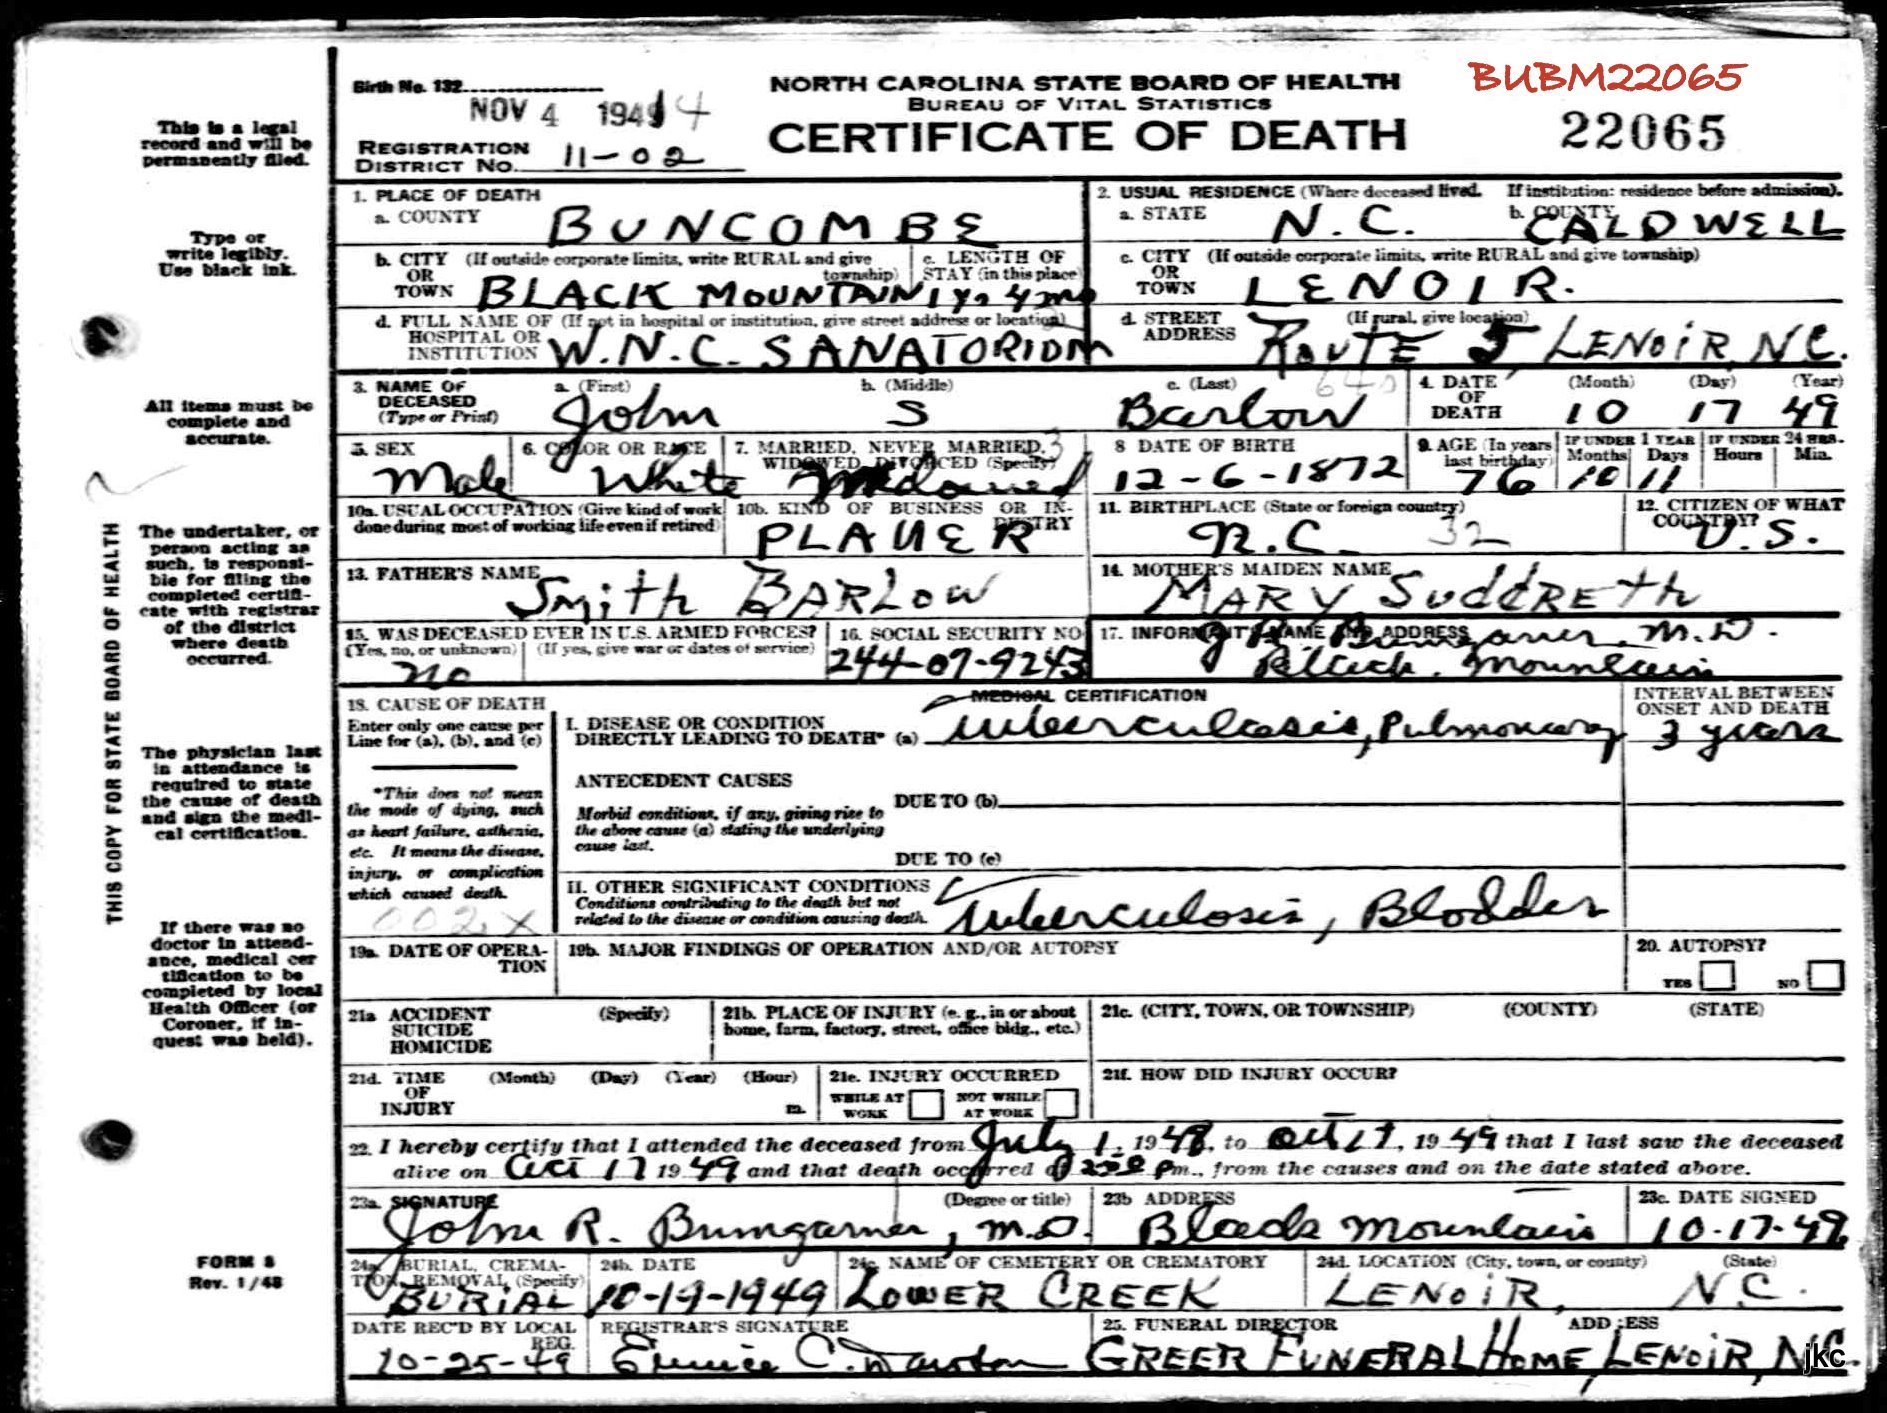 BUBM22065
Birth No. 132
NORTH CAROLINA STATE BOARD OF HEALTH
BUREAU OF VITAL STATISTICS
CERTIFICATE OF DEATH
22065
NOV 4 1949
REGISTRATION DISTRICT No. 11-02
This is a legal
record and will be
permanently filed.
Type or
write legibly.
Use black ink.
All items must be
complete and
accurate.
The undertaker, or
person acting as
such, is responsi-
ble for filing the
completed certifi-
cate with registrar
of the district
where death
occurred.
The physician last
in attendance is
required to state
the cause of death
and sign the medi-
cal certification.
If there was no
doctor in attend-
ance, medical cer
tification to be
completed by local
Health Officer (or
Coroner, if in-
quest was held).
FORM 8
Rev. 1/48
THIS COPY FOR STATE BOARD OF HEALTH
1. PLACE OF DEATH
a. COUNTY BUNCOMBE
2. USUAL RESIDENCE (Where deceased lived. If institution: residence before admission).
a. STATE N.C. b. COUNTY CALDWELL
b. CITY OR TOWN (If outside corporate limits, write RURAL and give township) BLACK MOUNTAIN
c. LENGTH OF STAY (in this place) 1 yr 4 mo
c. CITY OR TOWN (If outside corporate limits, write RURAL and give township) LENOIR.
d. FULL NAME OF HOSPITAL OR INSTITUTION (If not in hospital or institution, give street address or location) W.N.C. SANATORIUM
d. STREET ADDRESS (If rural, give location) ROUTE 5, LENOIR, N.C.
3. NAME OF DECEASED (Type or Print) a. (First) John b. (Middle) S c. (Last) Barlow
640
4. DATE OF DEATH (Month) (Day) (Year) 10 17 49
5. SEX Male
6. COLOR OR RACE White
7. MARRIED, NEVER MARRIED, WIDOWED, DIVORCED (Specify) Widowed 3
8 DATE OF BIRTH 12-6-1872
9. AGE (In years last birthday) 76
IF UNDER 1 YEAR Months Days 10 11
IF UNDER 24 HRS. Hours Min.
10a. USUAL OCCUPATION (Give kind of work done during most of working life even if retired)
10b. KIND OF BUSINESS OR INDUSTRY PLANER
11. BIRTHPLACE (State or foreign country) N.C. 32
12. CITIZEN OF WHAT COUNTRY? U.S.
13. FATHER'S NAME SMITH BARLOW
14. MOTHER'S MAIDEN NAME MARY SUDDRETH
15. WAS DECEASED EVER IN U.S. ARMED FORCES? (Yes, no, or unknown) (If yes, give war or dates of service) no
16. SOCIAL SECURITY NO 244-07-9243
17. INFORMANT'S NAME AND ADDRESS J R. Bumgarner, M.D.
Black Mountain
18. CAUSE OF DEATH
Enter only one cause per
Line for (a), (b), and (c)
*This does not mean
the mode of dying, such
as heart failure, asthenia,
etc. It means the disease,
injury, or complication
which caused death.
002X
MEDICAL CERTIFICATION
INTERVAL BETWEEN
ONSET AND DEATH
I. DISEASE OR CONDITION
DIRECTLY LEADING TO DEATH* (a) Tuberculosis, Pulmonary 3 years
ANTECEDENT CAUSES
Morbid conditions, if any, giving rise to
the above cause (a) stating the underlying
cause last.
DUE TO (b)
DUE TO (c)
II. OTHER SIGNIFICANT CONDITIONS
Conditions contributing to the death but not
related to the disease or condition causing death. Tuberculosis, Bladder
19a. DATE OF OPERATION
19b. MAJOR FINDINGS OF OPERATION AND/OR AUTOPSY
20. AUTOPSY?
YES NO
21a ACCIDENT SUICIDE HOMICIDE (Specify)
21b. PLACE OF INJURY (e. g., in or about home, farm, factory, street, office bldg., etc.)
21c. (CITY, TOWN, OR TOWNSHIP) (COUNTY) (STATE)
21d. TIME OF INJURY (Month) (Day) (Year) (Hour) m.
21e. INJURY OCCURRED
WHILE AT WORK NOT WHILE AT WORK
21f. HOW DID INJURY OCCUR?
22. I hereby certify that I attended the deceased from July 1, 1948, to Oct 17, 1949 that I last saw the deceased
alive on Oct 17 1949 and that death occurred at 2:00 Pm., from the causes and on the date stated above.
23a. SIGNATURE (Degree or title) John R. Bumgarner, M.D.
23b ADDRESS Black Mountain
23c. DATE SIGNED 10-17-49
24a. BURIAL, CREMATION, REMOVAL (Specify) BURIAL
24b. DATE 10-19-1949
24c. NAME OF CEMETERY OR CREMATORY LOWER CREEK
24d. LOCATION (City, town, or county) (State) LENOIR, N.C.
DATE REC'D BY LOCAL REG. 10-25-49
REGISTRAR'S SIGNATURE
25. FUNERAL DIRECTOR ADDRESS GREER FUNERAL HOME, LENOIR, N.C.
jkc